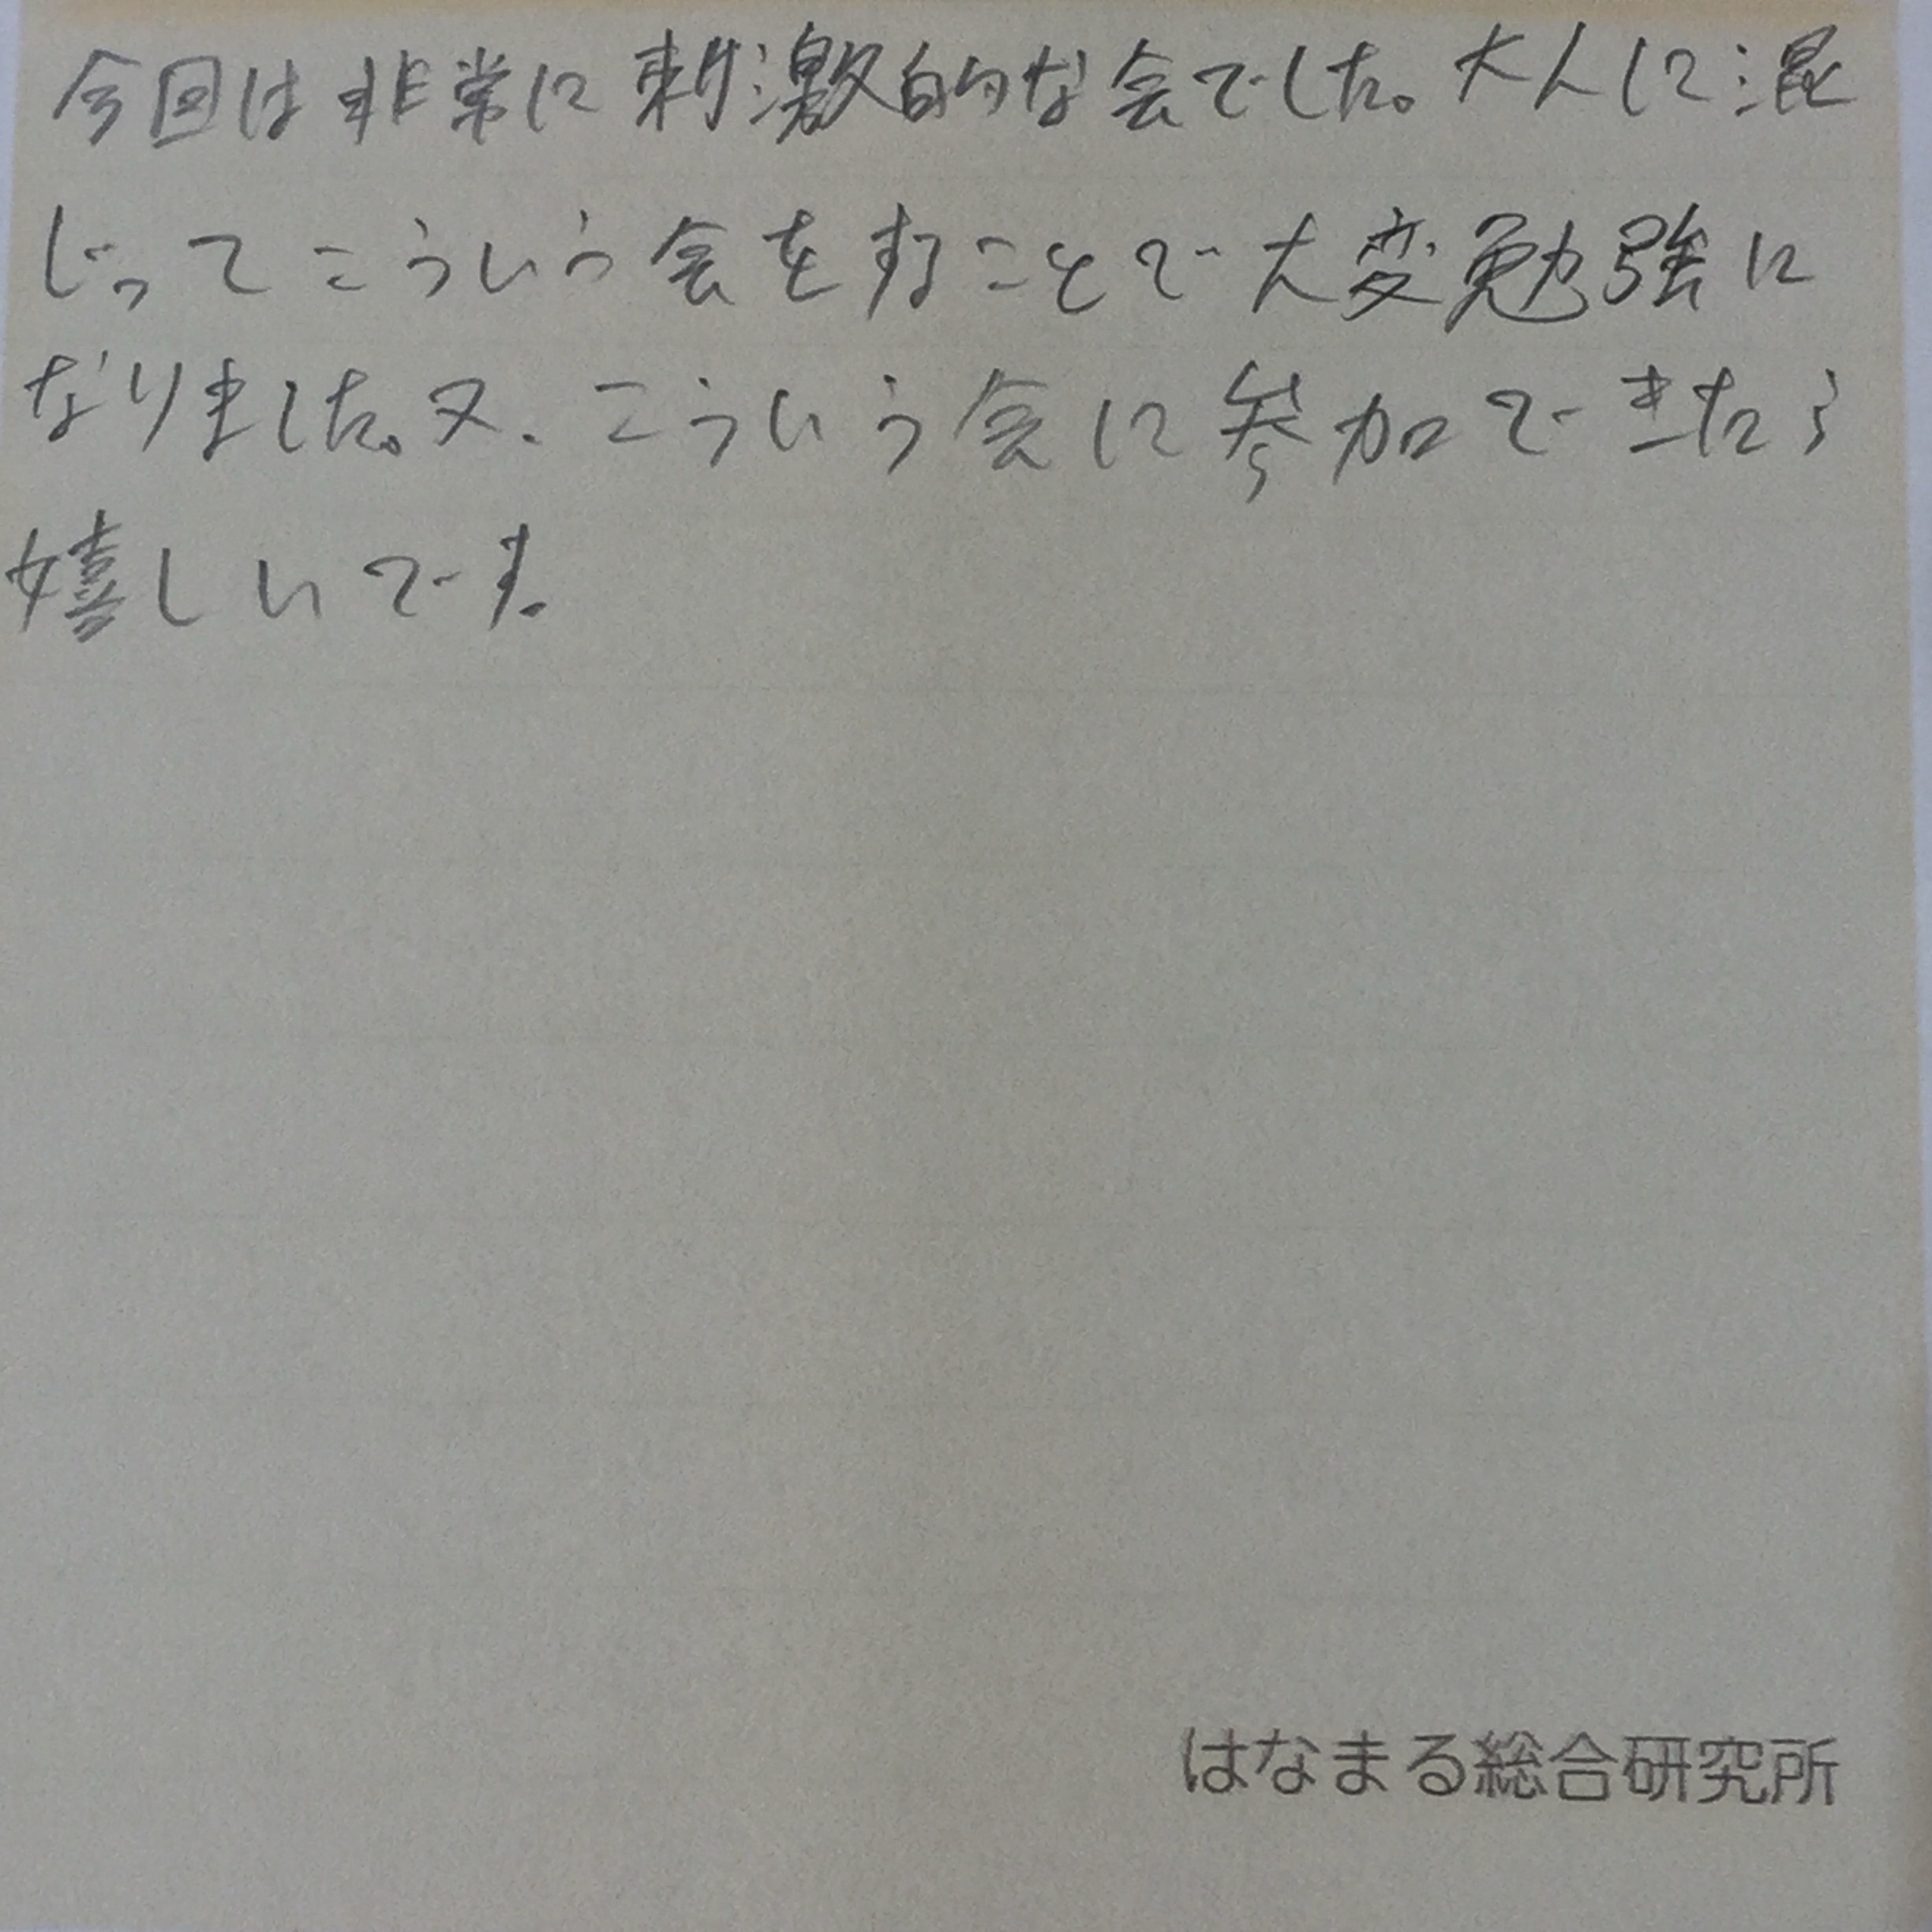 今回は非常に刺激的な会でした。大人に混
じってこういう会をすることで大変勉強に
なりました。又、こういう会に参加できたら
嬉しいです。
はなまる総合研究所